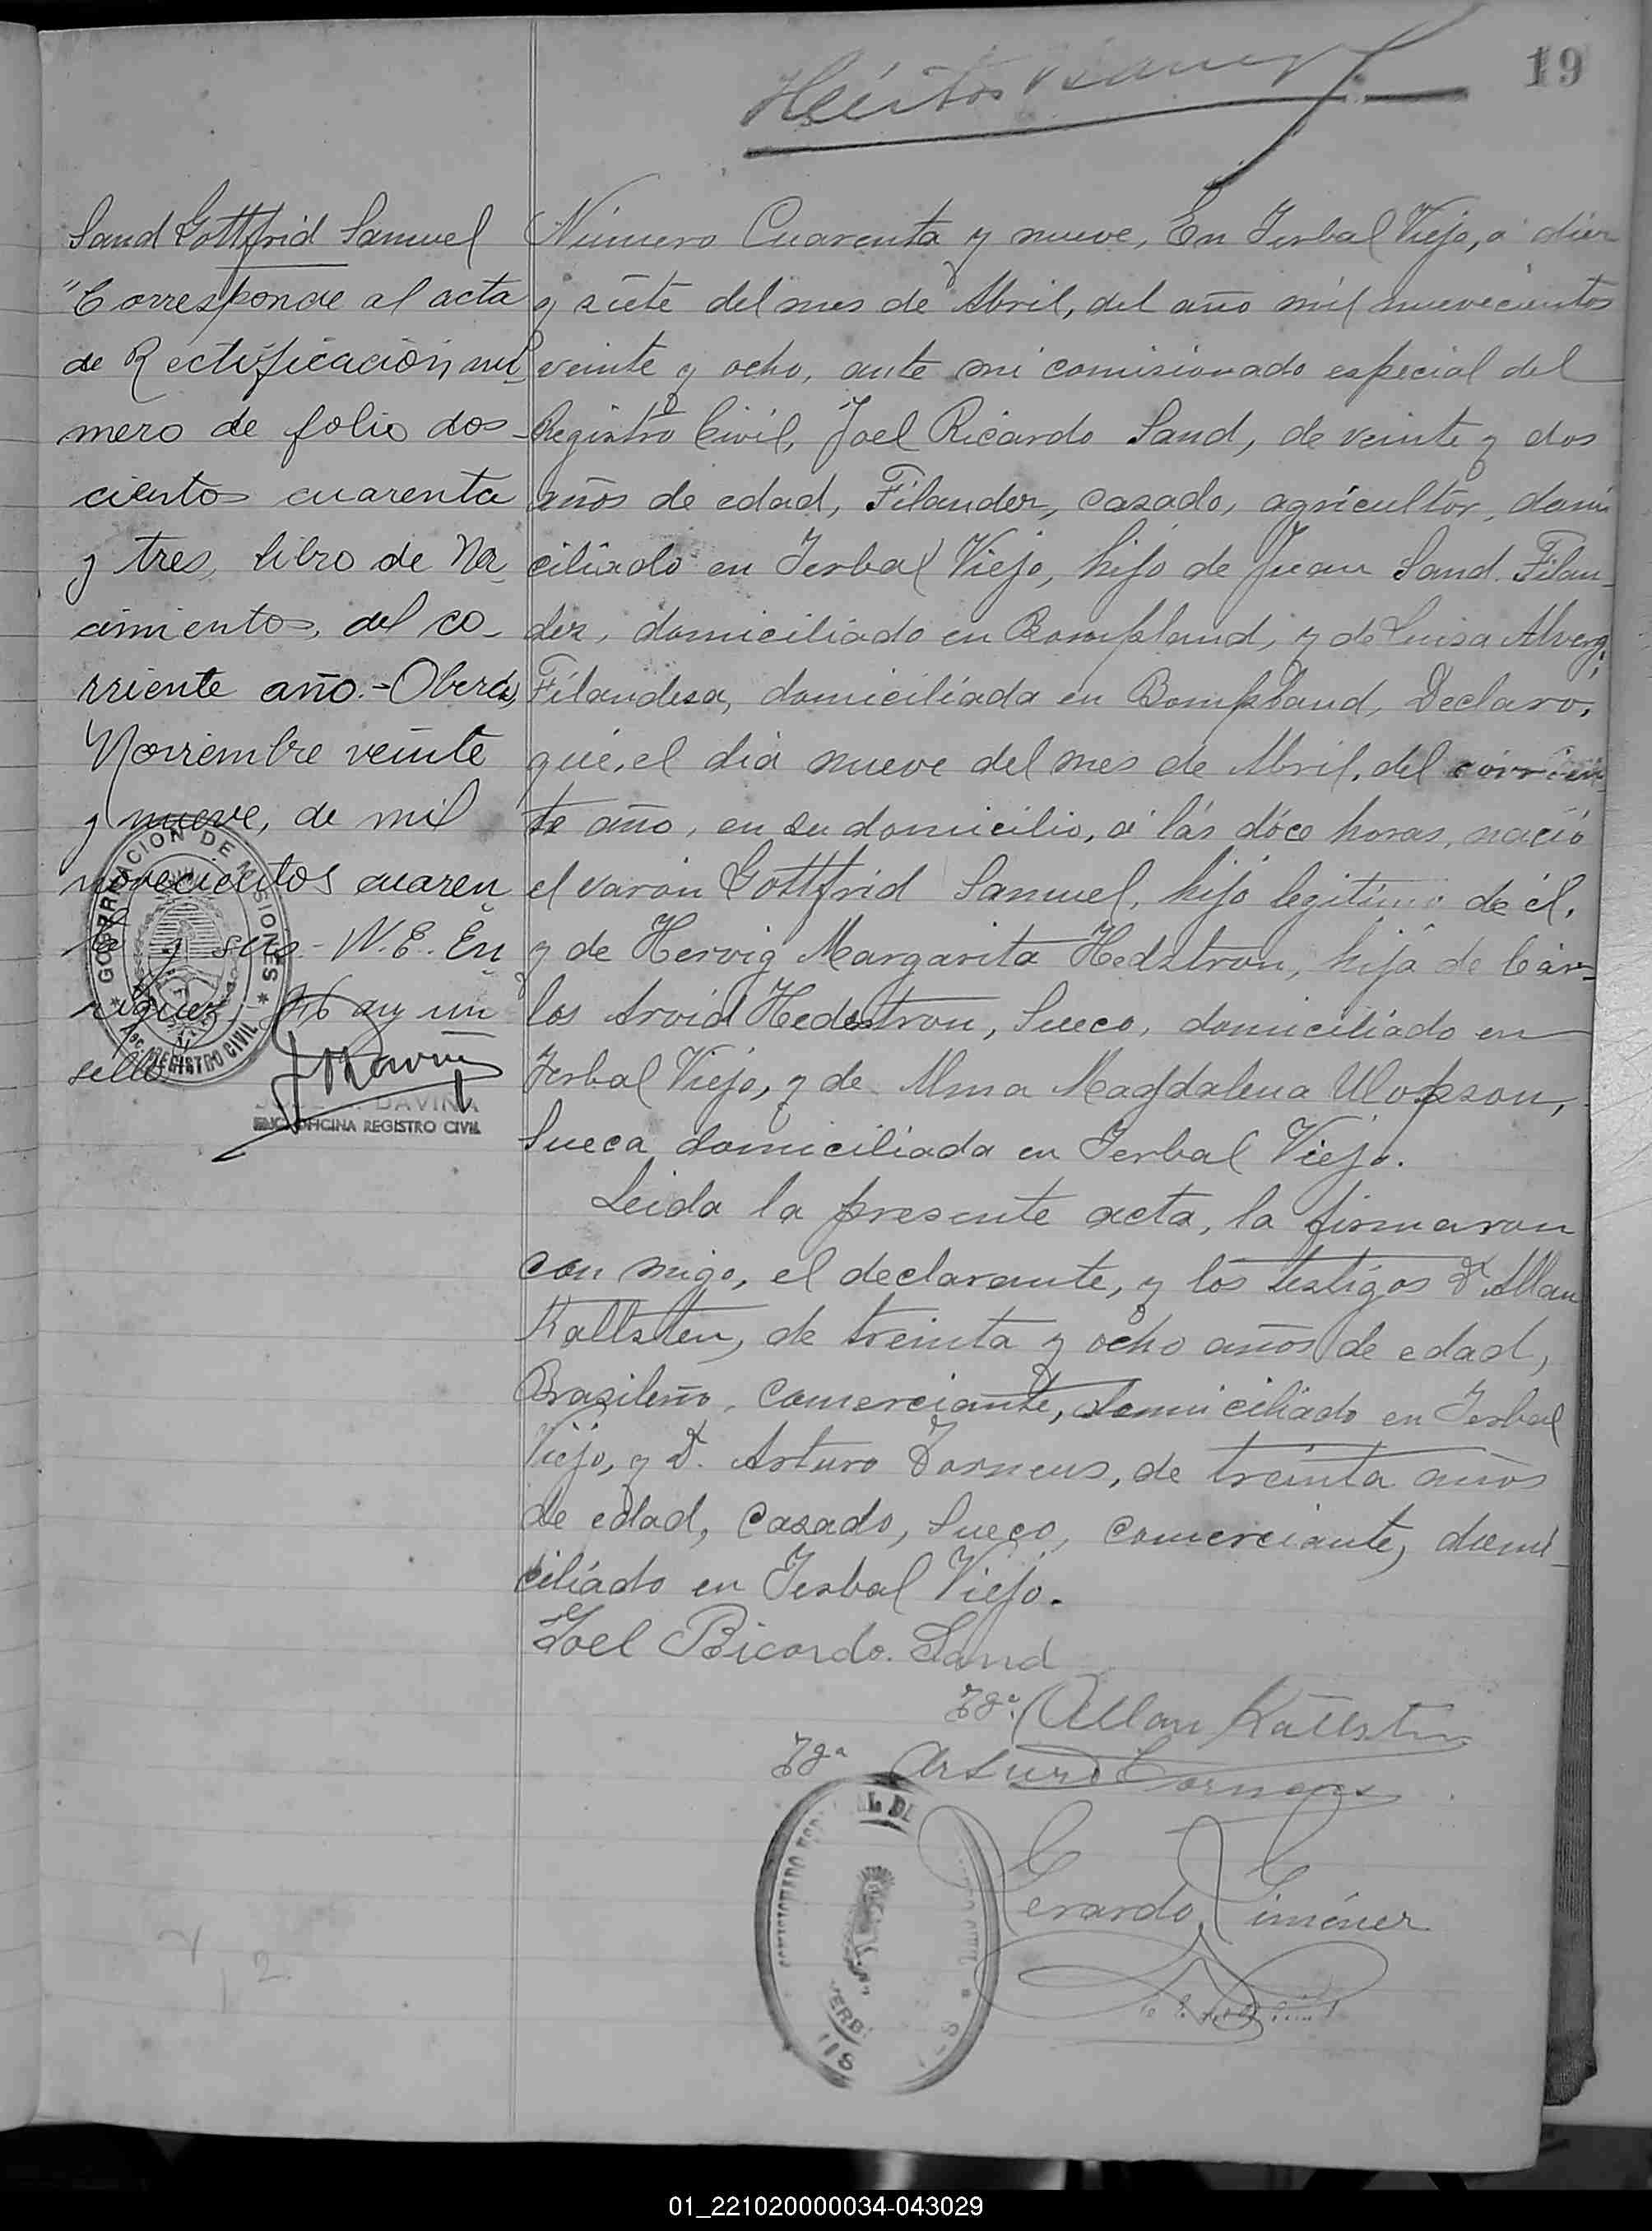 19
Sand Gottfrid Samuel
"Corresponde al acta
de Rectificación nú-
mero de folio dos-
cientos cuarenta
y tres, libro de Na-
cimientos, del co-
rriente año.- Oberá,
Noviembre veinte
y nueve, de mil
novecientos cuaren
ta y seis.- W.E. En
ríquez. Hay un
sello
GOBERNACION DE MISIONES
REGISTRO CIVIL
DAVIÑA
ENC. OFICINA REGISTRO CIVIL
Número Cuarenta y nueve, En Yerbal Viejo, a diez
y siete del mes de Abril, del año mil nuevecientos
veinte y ocho, ante mi comisionado especial del
Registro Civil, Joel Ricardo Sand, de veinte y dos
años de edad, Filander, casado, agricultor, domi
ciliado en Yerbal Viejo, hijo de Juan Sand Filan-
der, domiciliado en Bompland, y de Luisa Alverg,
Filandesa, domiciliada en Bompland, Declaro,
que, el dia nueve del mes de Abril, del corrien
te año, en su domicilio, a las dóce horas, nació
el varón Gottfrid Samuel, hijo legitimo de él,
y de Hervig Margarita Hedztron, hija de Cár-
los Arvid Hedestron, Sueco, domiciliado en
Yerbal Viejo, y de Alma Magdalena Ulopson,
Sueca domiciliada en Yerbal Viejo.
Leida la presente acta, la firmaron
con migo, el declarante, y los testigos D. Allan
Kallsten, de treinta y ocho años de edad,
Brazileño, comerciante, domiciliado en Yerbal
Viejo, y D. Arturo Torneus, de treinta años
de edad, casado, Sueco, comerciante, domi-
ciliado en Yerbal Viejo.
Joel Ricardo. Sand
Tgo. Allan Kallsten
Tgo Arturo Torneus
Gerardo Giménez
01_221020000034-043029